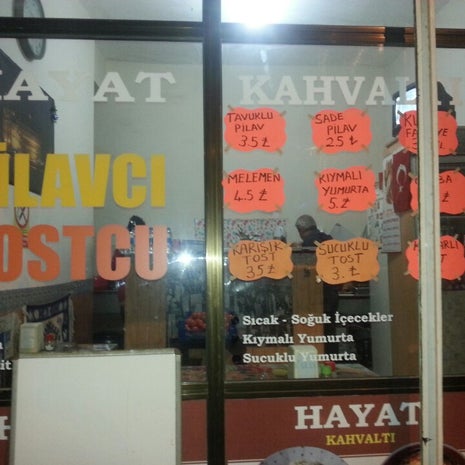 HAYAT KAHVALTI
TAVUKLU
PİLAV
3.5 ₺
SADE
PİLAV
2.5 ₺
MELEMEN
4.5 ₺
KIYMALI
YUMURTA
5. ₺
KARIŞIK
TOST
3.5 ₺
SUCUKLU
TOST
3. ₺
İLAVCI
OSTCU
Sıcak - Soğuk İçecekler
Kıymalı Yumurta
Sucuklu Yumurta
HAYAT
KAHVALTI